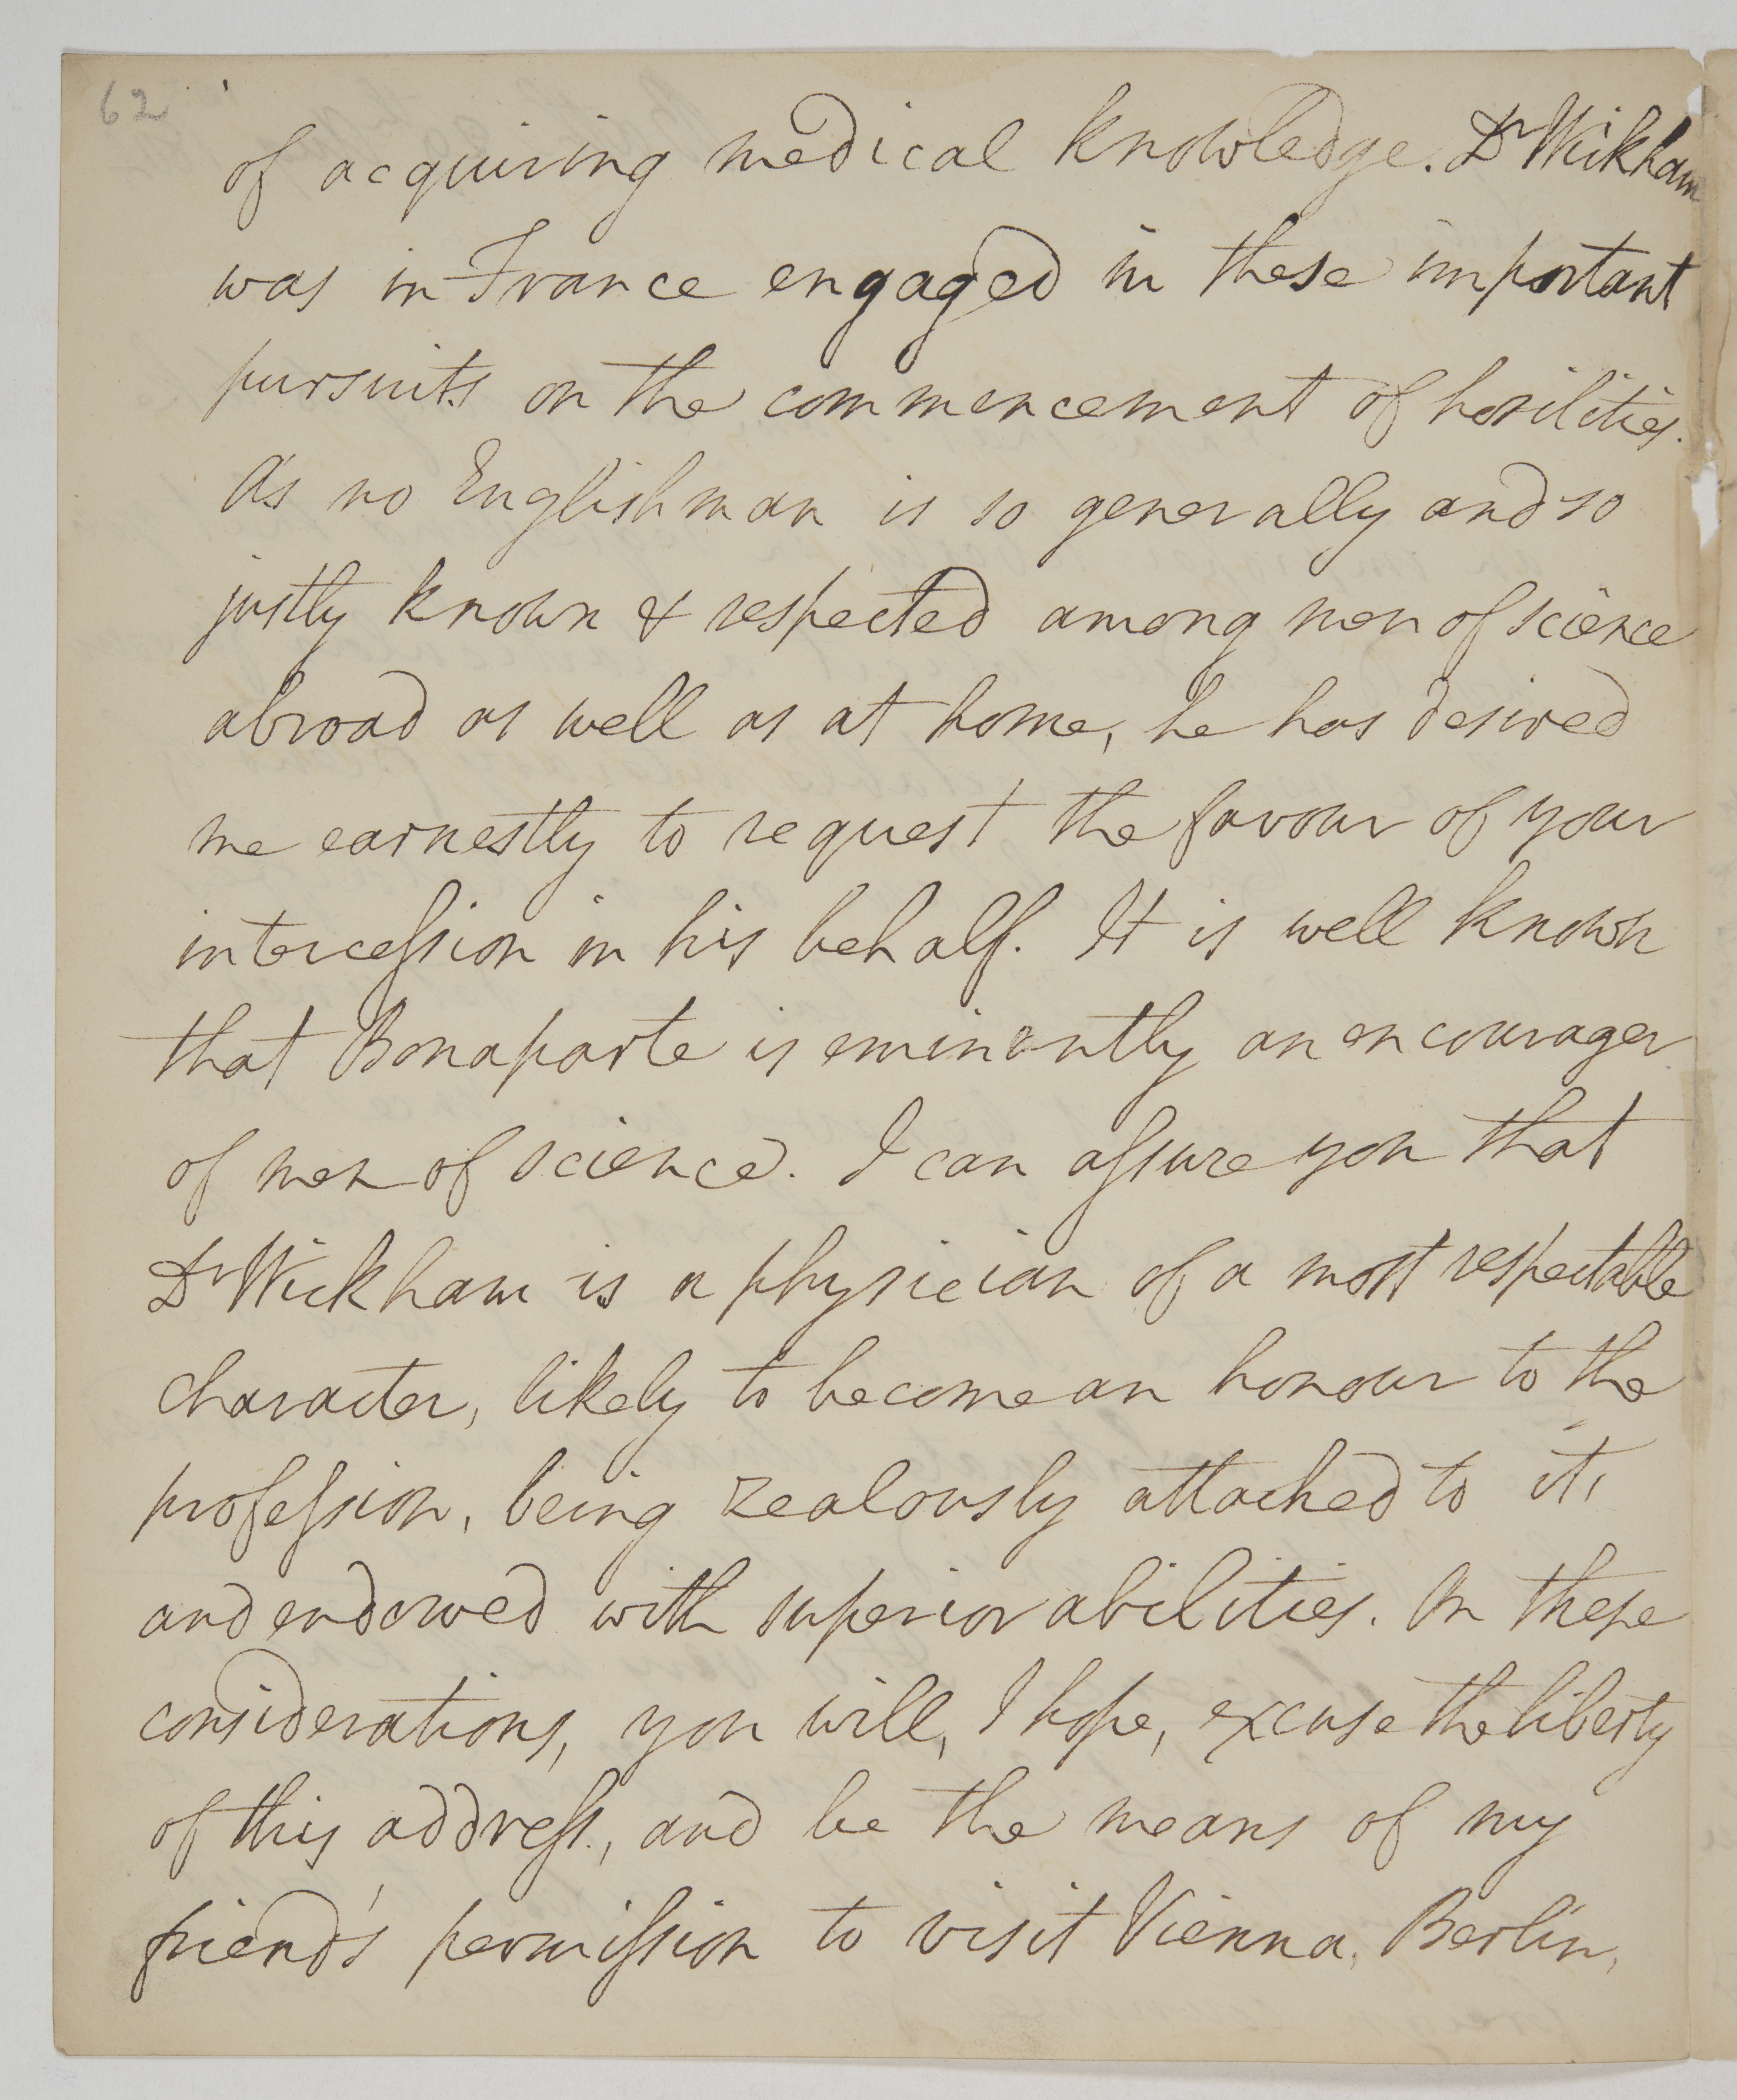 62
of acquiring medical knowledge. Dr Wickham
was in France engaged in these important
pursuits on the commencement of hostilities.
As no Englishman is so generally and so
justly known & respected among men of science
abroad as well as at home, he has desired
me earnestly to request the favour of your
intercession in his behalf. It is well known
that Bonaparte is eminently an encourager
of men of science. I can assure you that
Dr Wickham is a physician of a most respectable
character, likely to become an honour to the
profession, being zealously attached to it,
and endowed with superior abilities. On these
considerations, you will, I hope, excuse the liberty
of this address, and be the means of my
friend's permission to visit Vienna, Berlin,